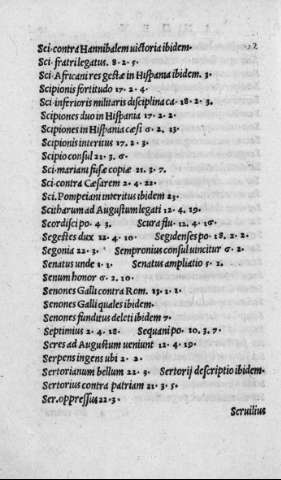 Sci-contra Hannibalem uictoria ibidem.
Sci. fratri legatus. 8. 2. 5.
Sci. Africani res gestæ in Hispania ibidem. 3.
Scipionis fortitudo 17. 2. 4.
Sci. inferioris militaris disciplina ca. 18. 2. 3.
Scipiones duo in Hispania 17. 2. 2.
Scipiones in Hispania cæsi 6. 2. 13.
Scipionis interitus 17. 2. 3.
Scipio consul 21. 3. 6.
Sci. mariani fusæ copiæ 21. 3. 7.
Sci. contra Cæsarem 2. 4. 22.
Sci. Pompeiani interitus ibidem 23.
Scitharum ad Augustum legati 12. 4. 19.
Scordisci po. 4 3. Scura flu. 12. 4. 16.
Segestes dux 12. 4. 10. Segidenses po. 18. 2. 2.
Segonia 22. 3. Sempronius consul uincitur 6. 2.
Senatus unde 1. 1. Senatus ampliatio 5. 2.
Senum honor 6. 2. 10.
Senones Galli contra Rom. 13. 1. 1.
Senones Galli quales ibidem.
Senones funditus deleti ibidem 7.
Septimius 2. 4. 18. Sequani po. 10. 3. 7.
Seres ad Augustum ueniunt 12. 4. 19.
Serpens ingens ubi 2. 2.
Sertorianum bellum 22. 3. Sertorij descriptio ibidem.
Sertorius contra patriam 21. 3. 5.
Ser. oppressus 22. 3.
Seruilius